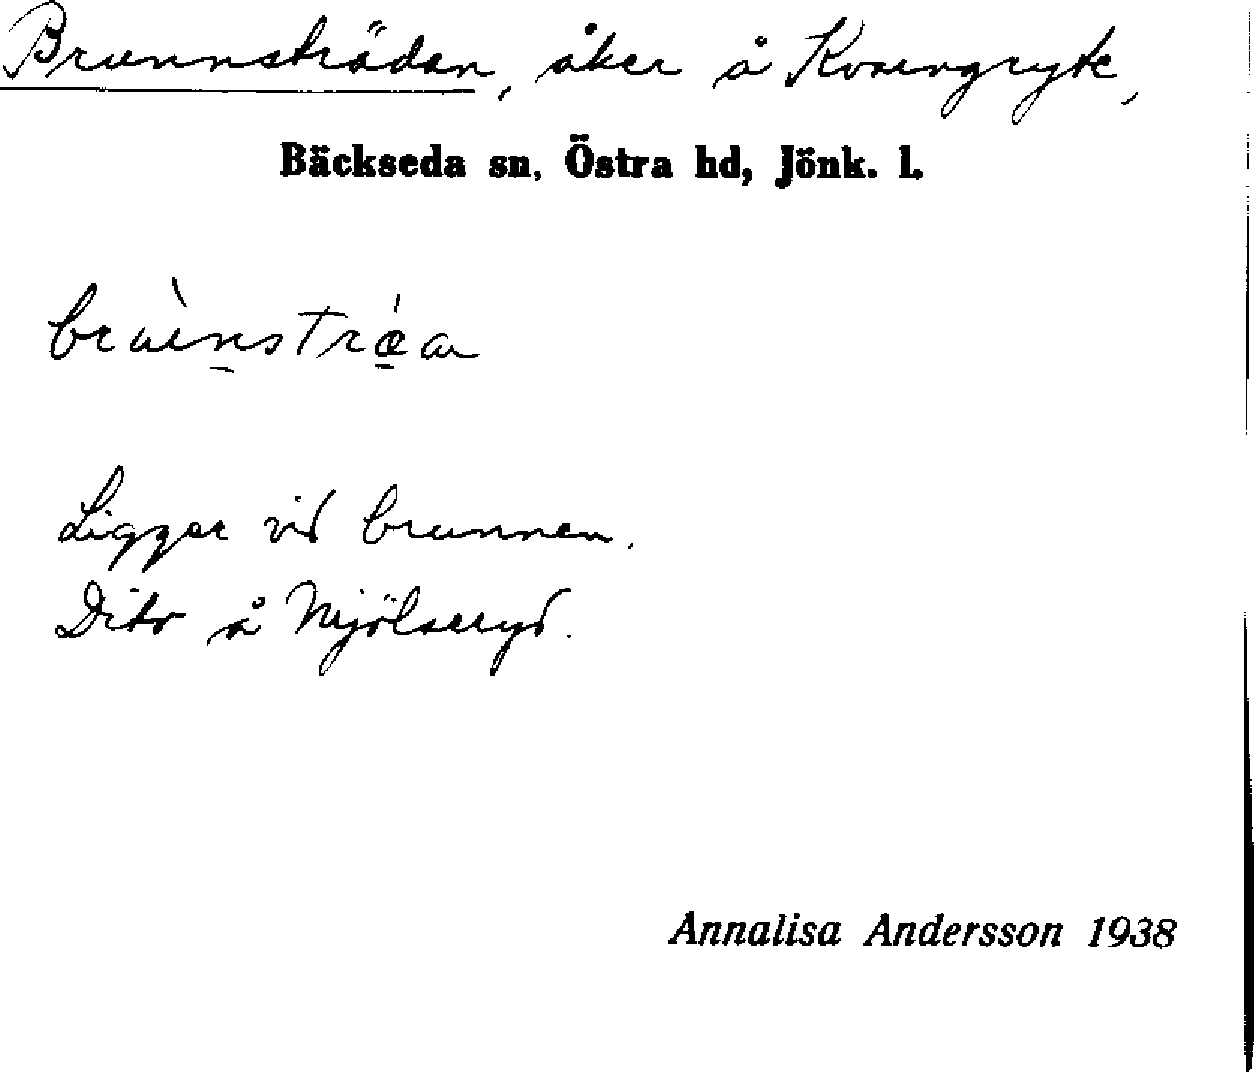 Brunnsträdan, åker å Kvarngryte,
Bäckseda sn, Östra hd, Jönk. l.
Ligger vid brunnen.
Dito å Mjölseryd.
Annalisa Andersson 1938